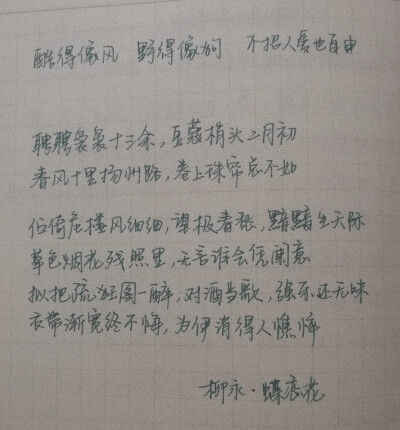 酷得像风 野得像狗 不招人爱也自由
聘聘袅袅十三余,豆蔻梢头二月初
春风十里扬州路,卷上珠帘总不如
伫倚危楼风细细,望极春愁,黯黯生天际
草色烟光残照里,无言谁会凭阑意
拟把疏狂图一醉,对酒当歌,强乐还无味
衣带渐宽终不悔,为伊消得人憔悴
柳永·蝶恋花